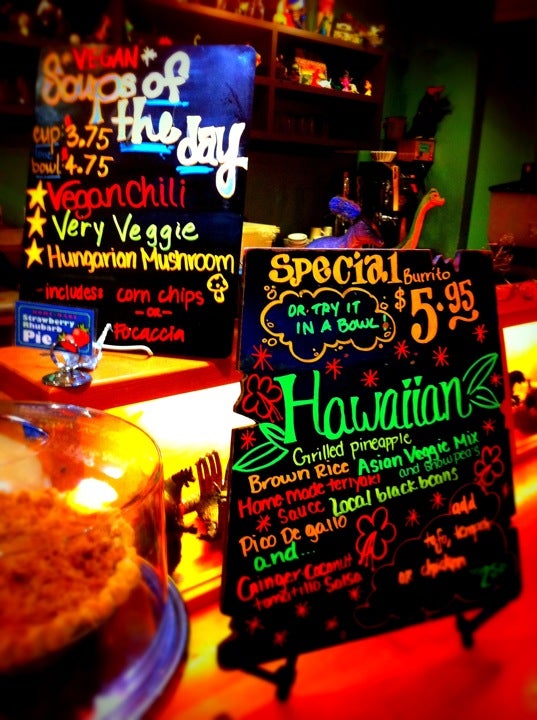 VEGAN*
Soups of
the
day
cup: 3.75
bowl: 4.75
Vegan Chili
Very Veggie
Hungarian Mushroom
-includes: corn chips
-OR-
Focaccia
Strawberry
Rhubarb
Pie
Special Burrito
OR TRY IT
IN A BOWL!
$5.95
Hawaiian
Grilled pineapple
Brown Rice Asian Veggie Mix
and snow peas
Home made teriyaki
sauce Local black beans
Pico De gallo
and...
Ginger Coconut
tomatillo Salsa
add
tofu, tempeh
or chicken